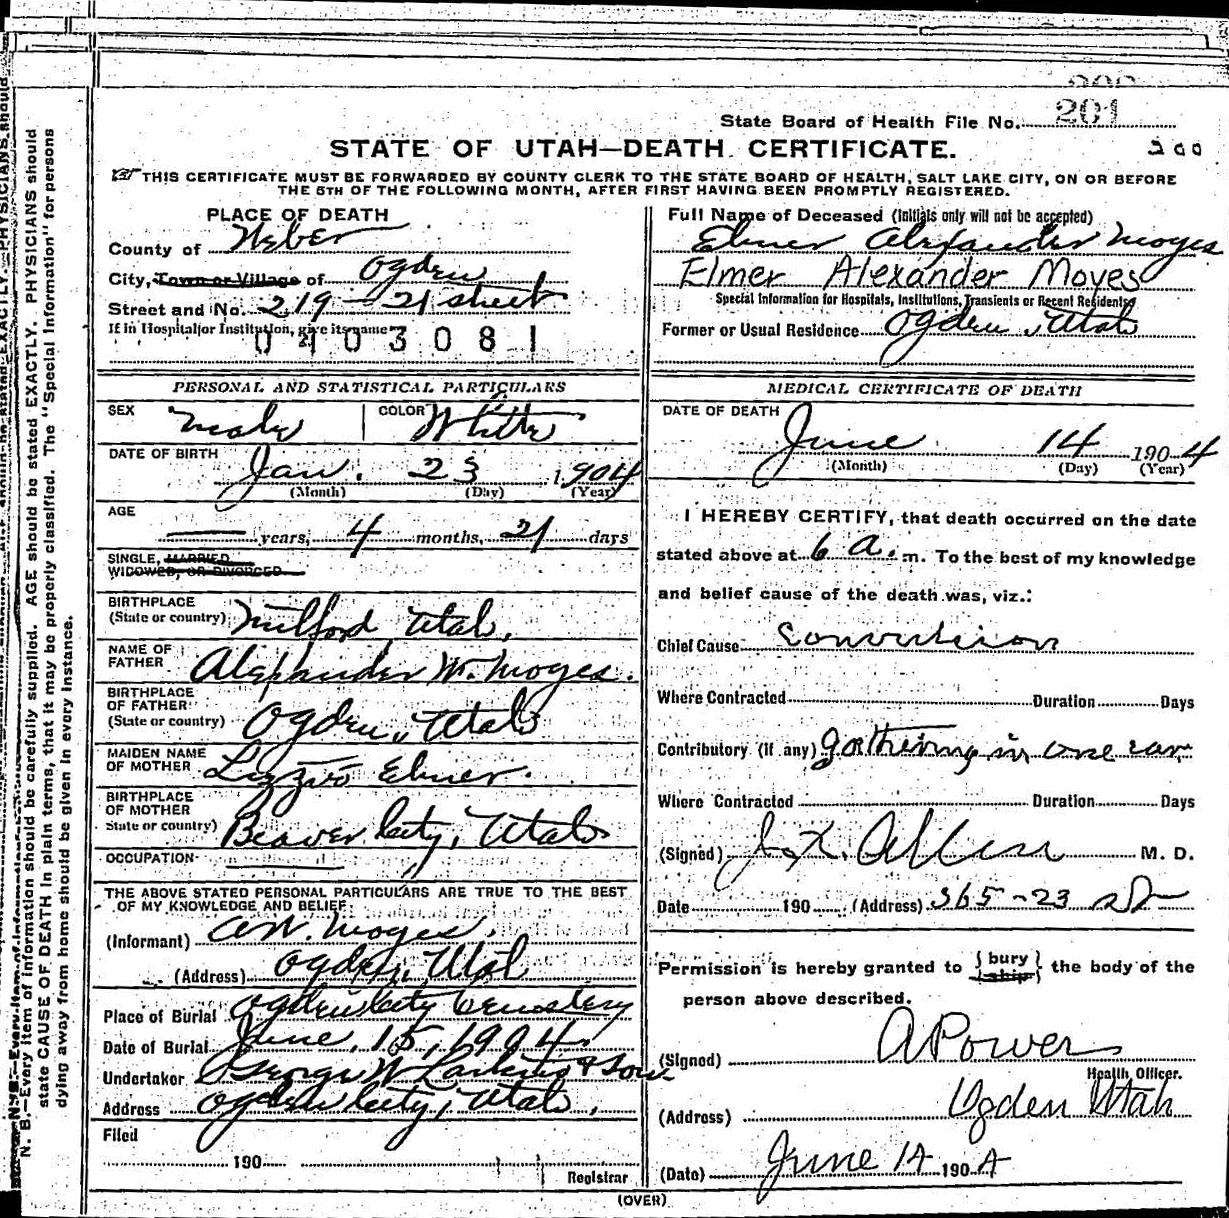 201
State Board of Health File No.
STATE OF UTAH—DEATH CERTIFICATE.
200
THIS CERTIFICATE MUST BE FORWARDED BY COUNTY CLERK TO THE STATE BOARD OF HEALTH, SALT LAKE CITY, ON OR BEFORE
THE 5TH OF THE FOLLOWING MONTH, AFTER FIRST HAVING BEEN PROMPTLY REGISTERED.
PLACE OF DEATH
County of Weber
City, Town or Village of Ogden
Street and No. 219 - 21 street
If in Hospital or Institution, give its name
0403081
Full Name of Deceased (Initials only will not be accepted)
Elmer Alexander Moyes
Elmer Alexander Moyes
Special Information for Hospitals, Institutions, Transients or Recent Residents
Former or Usual Residence Ogden, Utah
PERSONAL AND STATISTICAL PARTICULARS
SEX Male COLOR White
DATE OF BIRTH
Jan. 23 1904
(Month) (Day) (Year)
AGE
— years, 4 months, 21 days
SINGLE, MARRIED
WIDOWED, OR DIVORCED
BIRTHPLACE
(State or country) Milford Utah.
NAME OF
FATHER Alexander W. Moyes.
BIRTHPLACE
OF FATHER
(State or country) Ogden, Utah
MAIDEN NAME
OF MOTHER Lizzie Elmer.
BIRTHPLACE
OF MOTHER
State or country) Beaver City, Utah
OCCUPATION
THE ABOVE STATED PERSONAL PARTICULARS ARE TRUE TO THE BEST
OF MY KNOWLEDGE AND BELIEF
(Informant) A.W. Moyes.
(Address) Ogden, Utah
Place of Burial Ogden City Cemetery
Date of Burial June, 15, 1904.
Undertaker George W Larkins & Son
Address Ogden City, Utah.
Filed
190
Registrar
MEDICAL CERTIFICATE OF DEATH
DATE OF DEATH
June 14 1904
(Month) (Day) (Year)
I HEREBY CERTIFY, that death occurred on the date
stated above at 6 a.m. To the best of my knowledge
and belief cause of the death was, viz.:
Chief Cause Convulsion
Where Contracted Duration Days
Contributory (if any) gathering in one ear
Where Contracted Duration Days
(Signed) Allen M. D.
Date 190 (Address) 365-23
Permission is hereby granted to {bury
ship} the body of the
person above described.
(Signed) A Power
Health Officer.
(Address) Ogden Utah
(Date) June 14 1904
(OVER)
N. B.—Every item of information should be carefully supplied. AGE should be stated EXACTLY. PHYSICIANS should
state CAUSE OF DEATH in plain terms, that it may be properly classified. The "Special Information" for persons
dying away from home should be given in every instance.